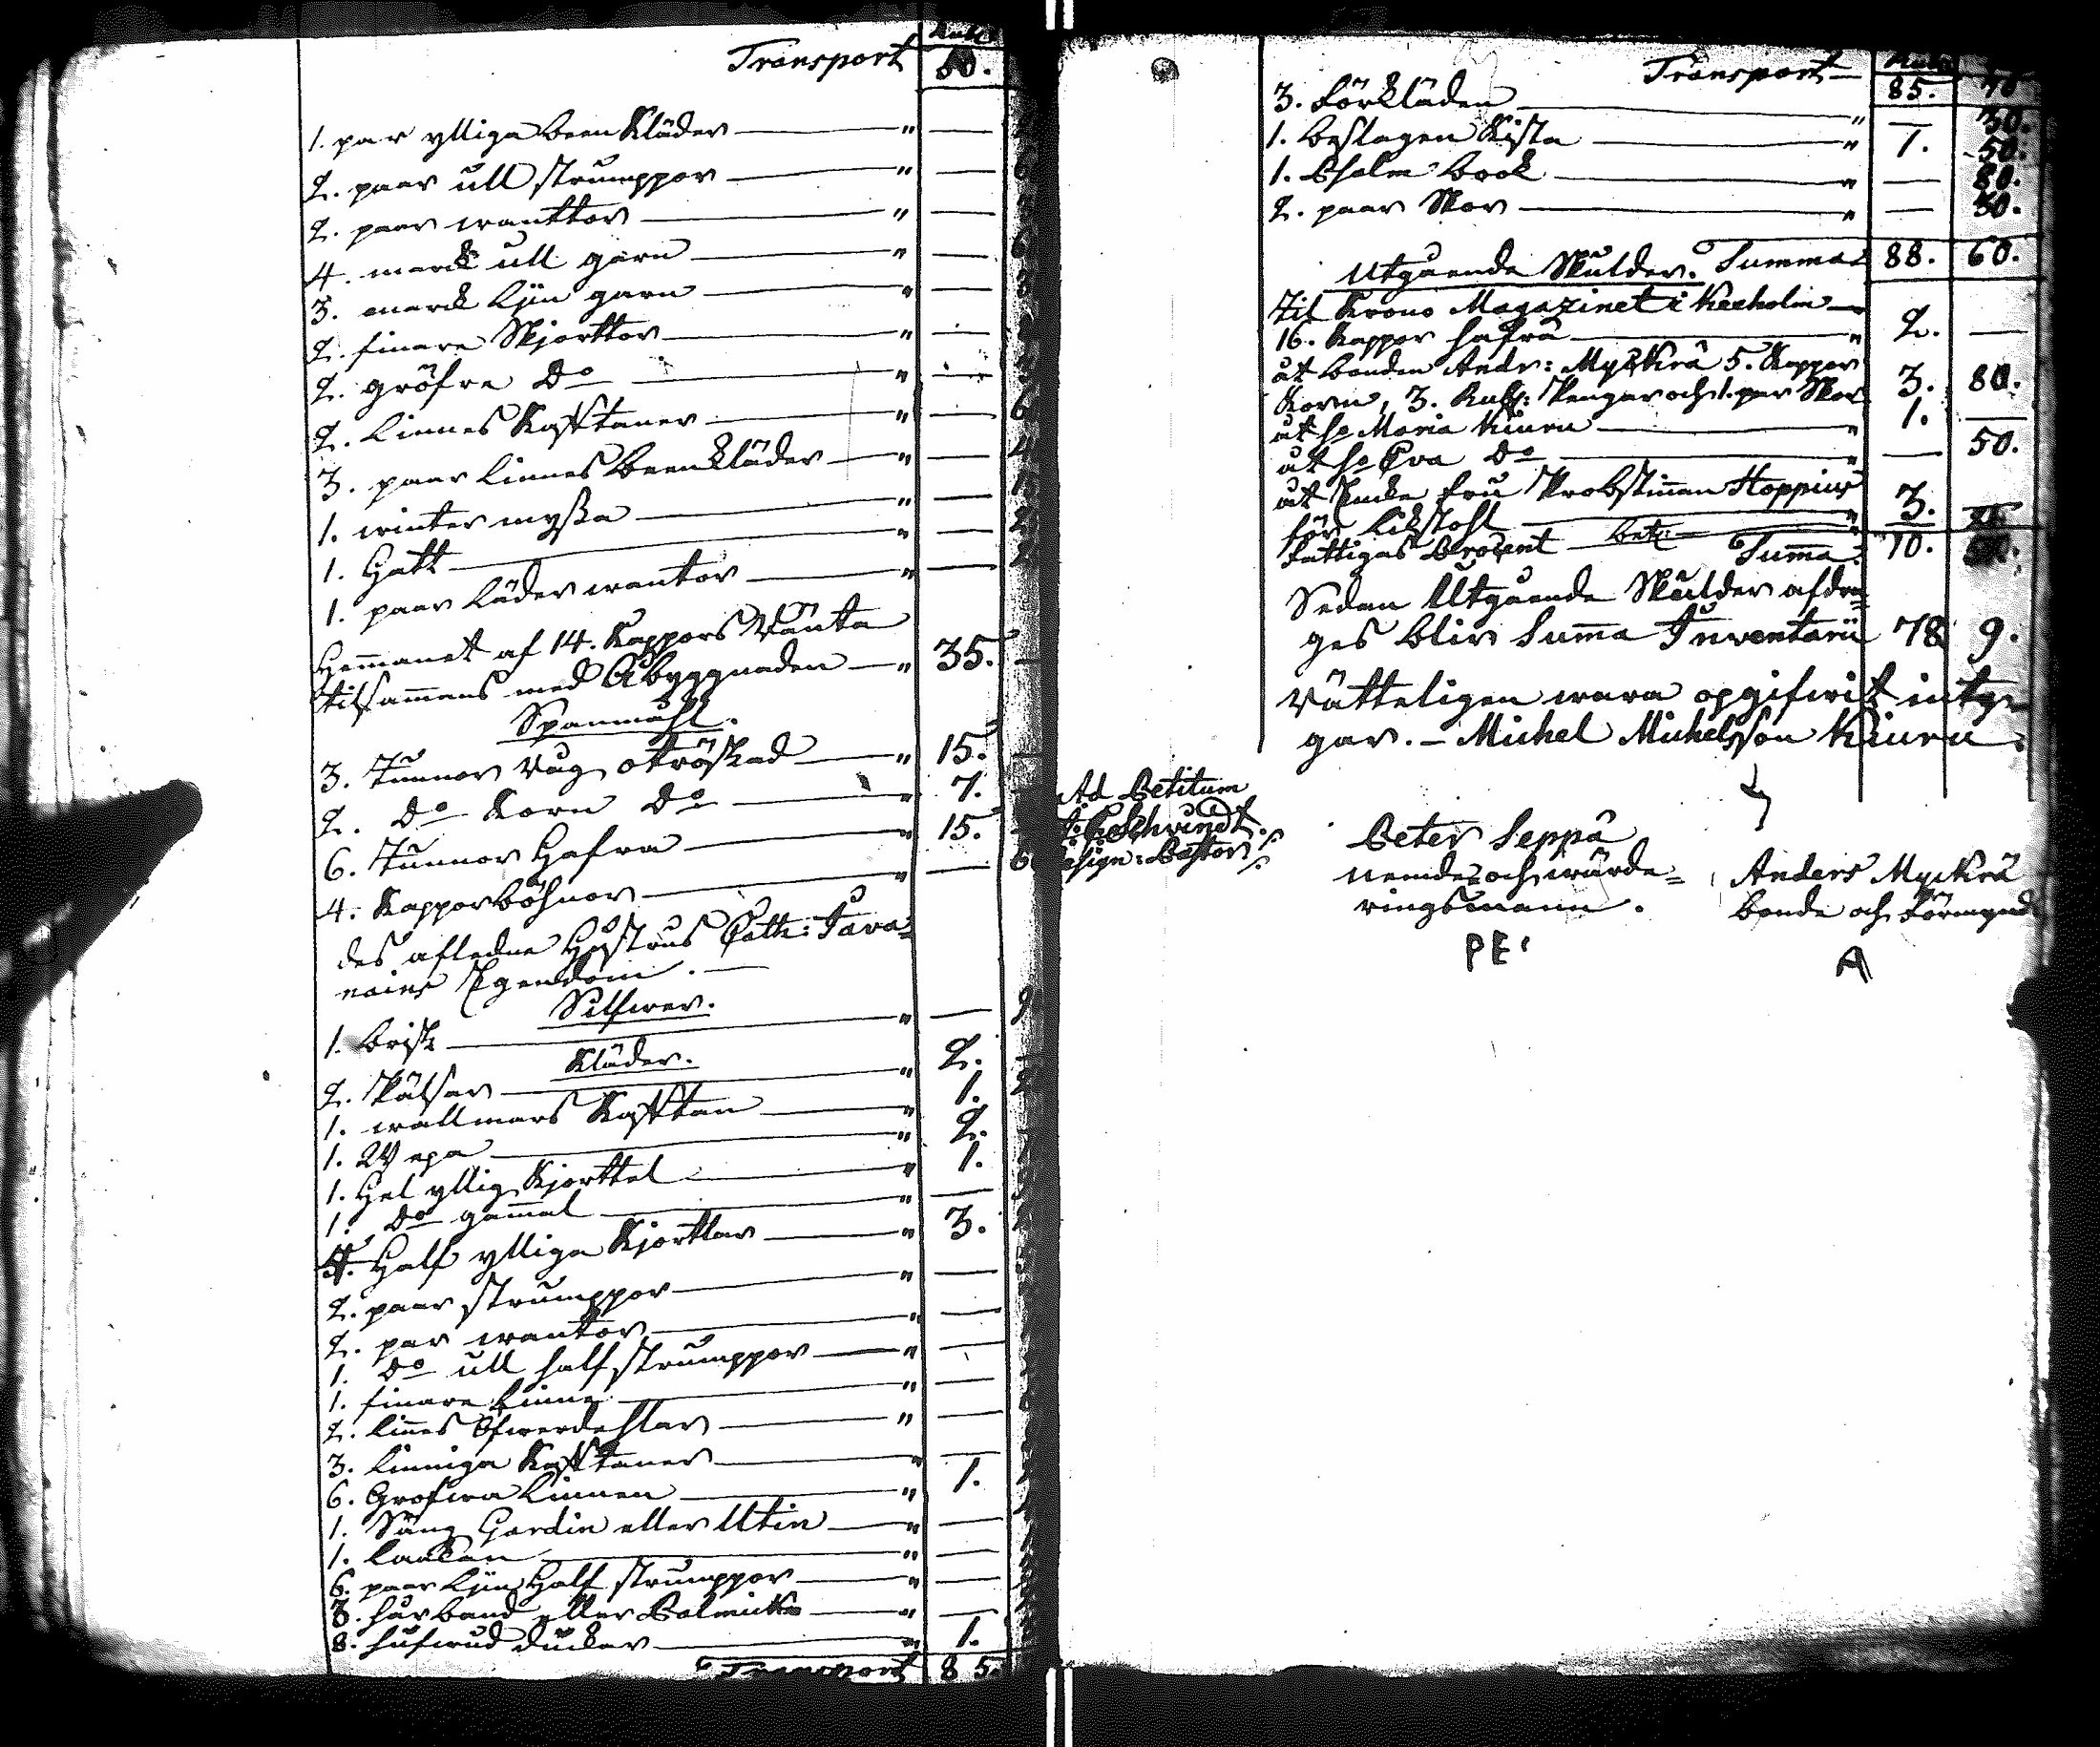 Transport 50.
1. par ylliga beenkläder — " —
2. paar ull strumppor — " —
2. paar wanttor — " —
4. marck ull garn — " —
3. marck lijn garn — " —
2. finare Skjorttor — " —
2. gröfre Do — " —
2. Linnes Kafftaner — " —
3. paar linnes beenkläder — " —
1. winter myssa — " —
1. Hatt — " —
1. paar läder wantor — " —
Hemmanet af 14. Kappors Ränta
tilsammans med Åbyggnaden — " 35.
Spanmåhl.
3. Tunnor Råg otröskad — " 15.
2. Do Korn Do — " 7.
6. Tunnor Hafra — " 15.
4. Kappor böhnor — " —
des aflednе Hustrus Cath: Tava=
nains Egendom. —
Silfwer.
1. brisk — " —
Kläder.
2. Pältsar — " 2.
1. wallmars Kafftan — " 1.
1. Wepa — " 2.
1. Hel yllig Kjorttel — " 1.
1. Do gammal — " —
4. Half ylliga Kjorttlar — " 3.
2. paar strumppor — " —
2. par wantor — " —
1. Do ull half strumppor — " —
1. finare Linne — " —
2. linnes öfwerdehlar — " —
3. linniga Kafftaner — " —
6. Grofwa linnen — " 1.
1. Säng Gardin eller Utin — " —
1. laakan — " —
6. paar lijn Half strumppor — " —
3. hårband eller — " —
8. hufwud dukar — " 1.
Transport 85.
Transport — 85. 70
3. Förkläden — " — 30.
1. beslagen Kista — " 1. 50.
1. Psalm book — " — 80.
2. paar Skor — " — 30.
Utgående Skulder. Summa 88. 60.
Til Krono Magazinet i Kexholm —
16. Kappor hafra — " 2. —
åt bonden Andr: Myckrä 5. Kappor
Korn, 3. Rub: Pengar och 1. par Skor 3. 80.
åt ho Maria Kiuru — " 1. —
åt ho Eva Do — " — 50.
åt Encke fru Probstinnan Hoppius
för Likstohl — " 3. —
Fattigas Procent — bet. — Summa. 10.
Sedan Utgående Skulder afdra=
ges blir Summa Inventarii 78 9.
Rätteligen wara opgifwit inty=
gar. — Michel Michelsson Kiuru.
Ad Petitum
Schvindt.
Pastor
Peter Seppä
nemde= och wärde=
ringsmann.
PE
Anders Myckrä
bonde och Förmynd
A